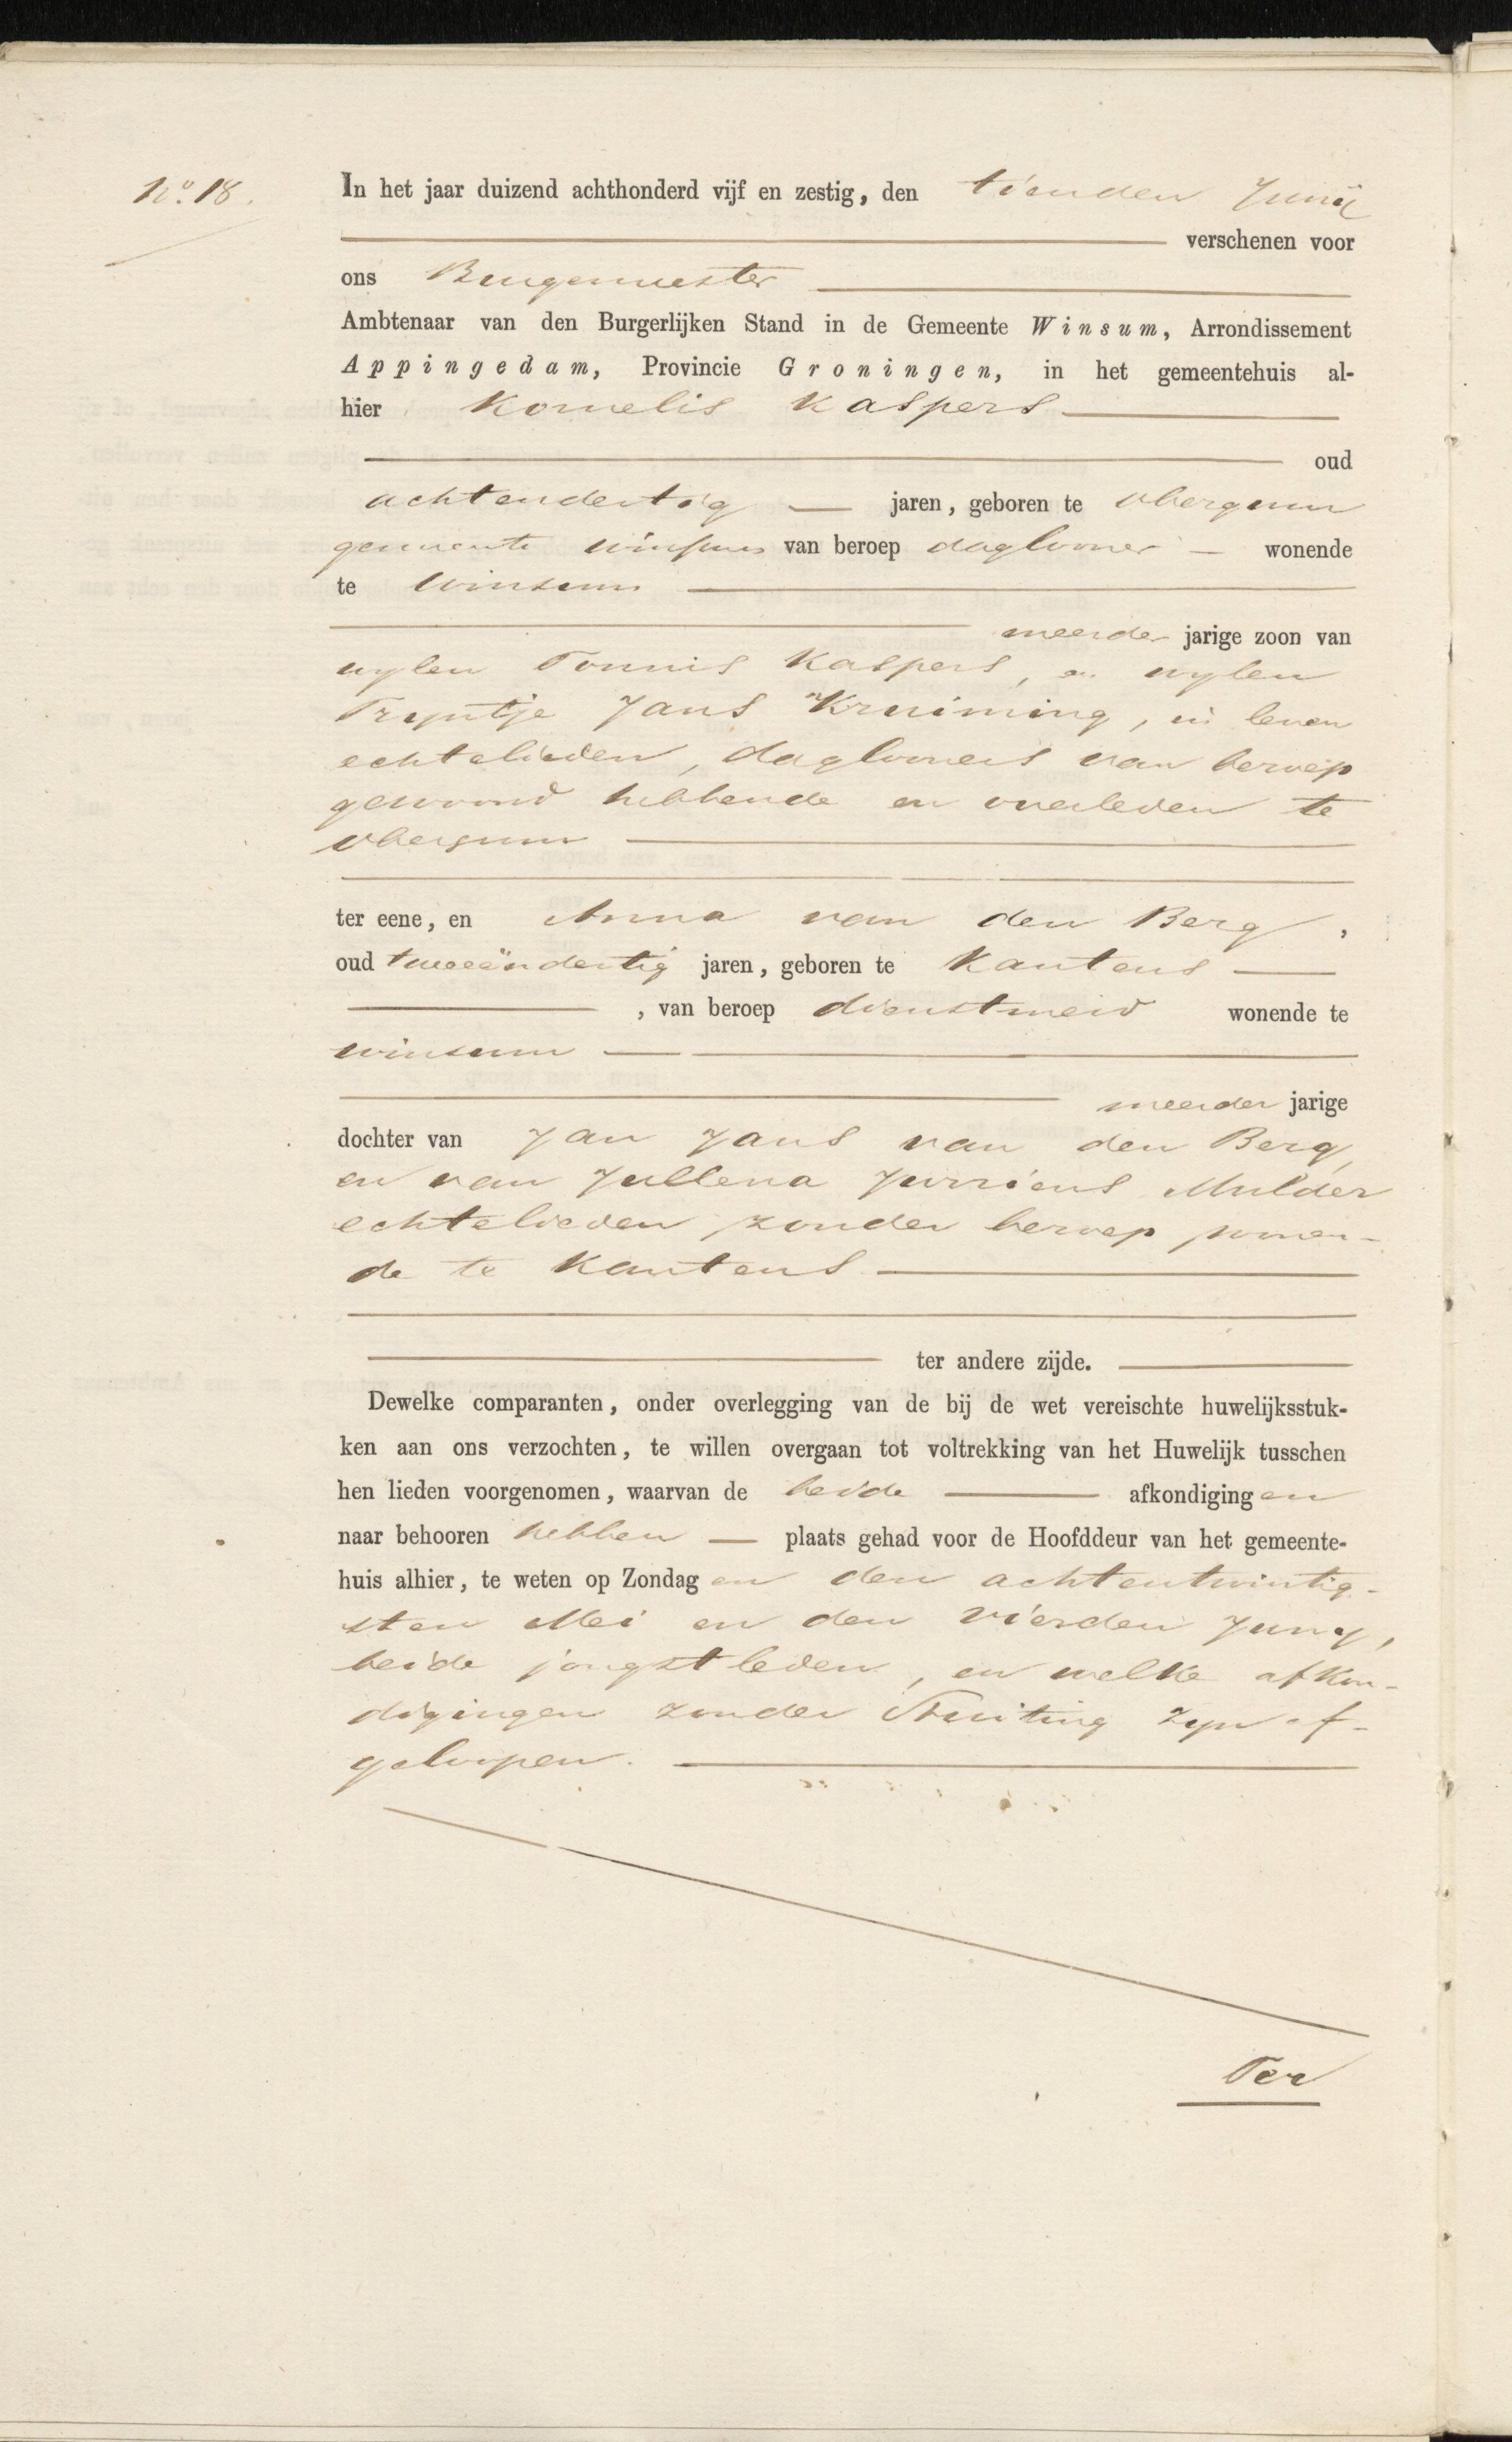 No. 18.
In het jaar duizend achthonderd vijf en zestig, den tienden Junij
verschenen voor
ons Burgemeester
Ambtenaar van den Burgerlijken Stand in de Gemeente Winsum, Arrondissement
Appingedam, Provincie Groningen, in het gemeentehuis al-
hier Kornelis Kaspers
oud
achtendertig jaren, geboren te Obergum
gemeente Winsum van beroep daglooner wonende
te Winsum
meerder jarige zoon van
wylen Tonnis Kaspers, en wylen
Tryntje Jans Kruiming, in leven
echtelieden, daglooners van beroep
gewoond hebbende en overleden te
Obergum
ter eene, en Anna van den Berg,
oud tweeëndertig jaren, geboren te Kantens
, van beroep dienstmeid wonende te
Winsum
meerder jarige
dochter van Jan Jans van den Berg,
en van Jullena Jurriens Mulder
echtelieden zonder beroep wonen-
de te Kantens
ter andere zijde.
Dewelke comparanten, onder overlegging van de bij de wet vereischte huwelijksstuk-
ken aan ons verzochten, te willen overgaan tot voltrekking van het Huwelijk tusschen
hen lieden voorgenomen, waarvan de beide afkondigingen
naar behooren hebben plaats gehad voor de Hoofddeur van het gemeente-
huis alhier, te weten op Zondagen den achtentwintig-
sten Mei en den vierden Juny,
beide jongstleden, en welke afkon-
digingen zonder stuiting zyn af-
geloopen.
Ter